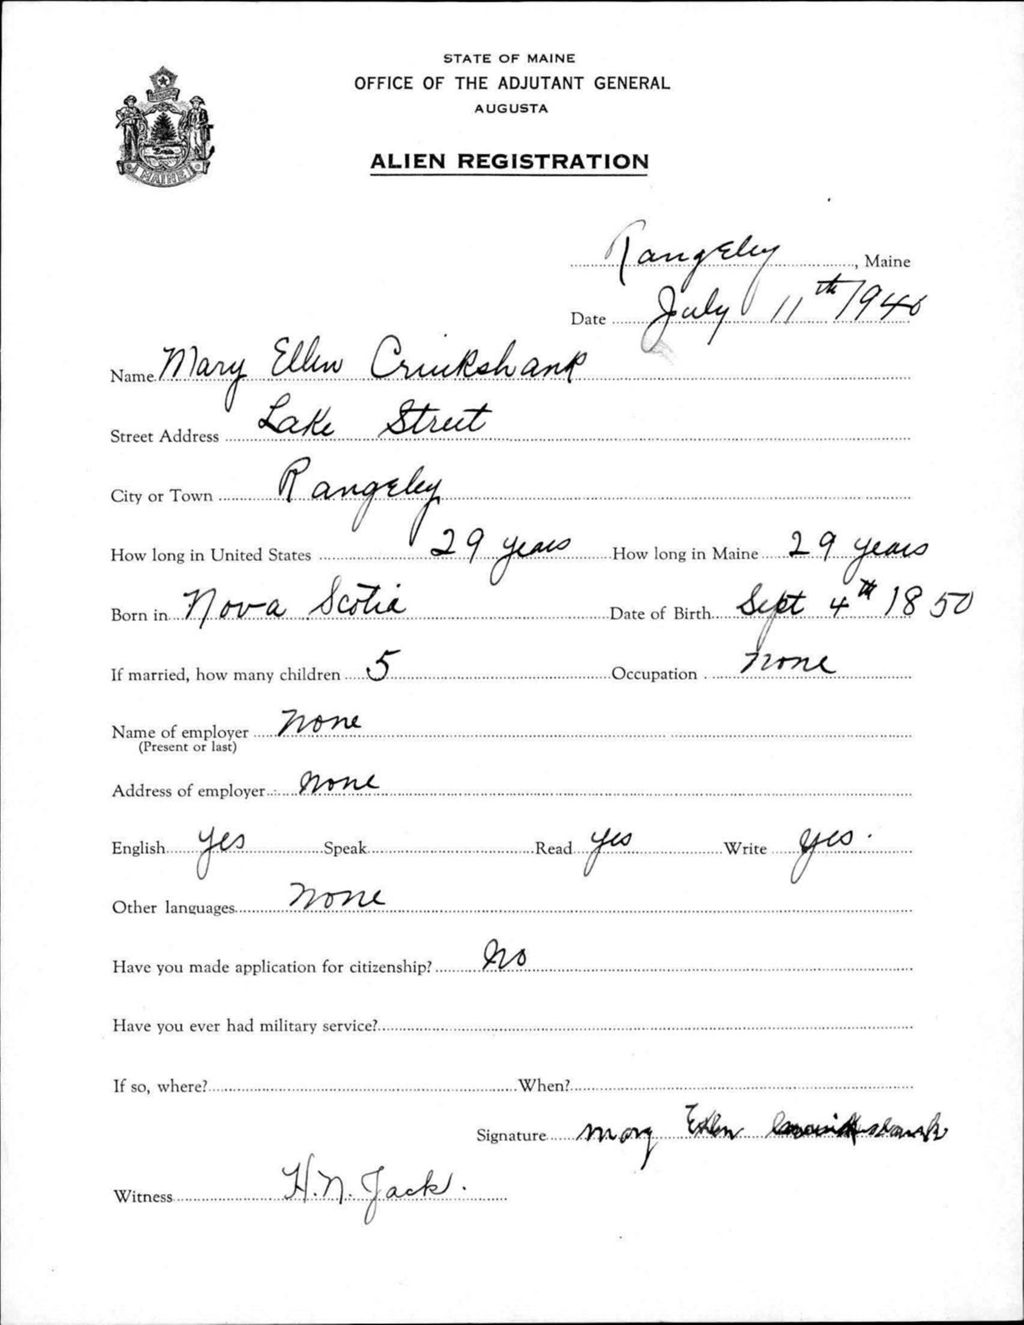 STATE OF MAINE
OFFICE OF THE ADJUTANT GENERAL
AUGUSTA
ALIEN REGISTRATION
MAINE
Rangeley, Maine
Date July 11th 1940
Name Mary Ellen Cruikshank
Street Address Lake Street
City or Town Rangeley
How long in United States 29 years How long in Maine 29 years
Born in Nova Scotia Date of Birth Sept 4th 1850
If married, how many children 5 Occupation none
Name of employer none
(Present or last)
Address of employer none
English yes Speak Read yes Write yes.
Other languages None
Have you made application for citizenship? No
Have you ever had military service?
If so, where? When?
Signature Mary Ellen
Witness H. N. Jack.